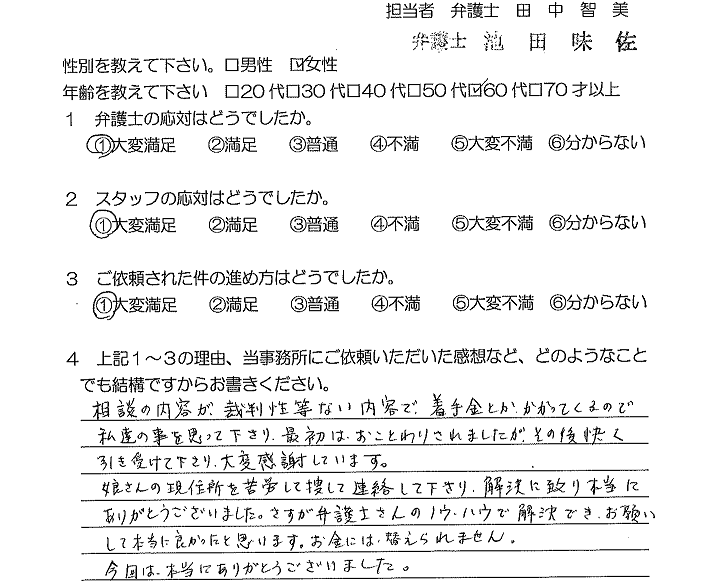 担当者 弁護士 田中智美
弁護士 池田味佐
性別を教えて下さい。□男性 ☑女性
年齢を教えて下さい □20代□30代□40代□50代☑60代□70才以上
1 弁護士の応対はどうでしたか。
①大変満足 ②満足 ③普通 ④不満 ⑤大変不満 ⑥分からない
2 スタッフの応対はどうでしたか。
①大変満足 ②満足 ③普通 ④不満 ⑤大変不満 ⑥分からない
3 ご依頼された件の進め方はどうでしたか。
①大変満足 ②満足 ③普通 ④不満 ⑤大変不満 ⑥分からない
4 上記1～3の理由、当事務所にご依頼いただいた感想など、どのようなこと
でも結構ですからお書きください。
相談の内容が、裁判性等ない内容で、着手金とか、かかってくるので
私達の事を思って下さり、最初は、おことわりされましたが、その後快く
引き受けて下さり、大変感謝しています。
娘さんの現住所を苦労して捜して連絡して下さり、解決に致り本当に
ありがとうございました。さすが弁護士さんのノウ・ハウで解決でき、お願い
して本当に良かったと思います。お金には、替えられません。
今回は、本当にありがとうございました。